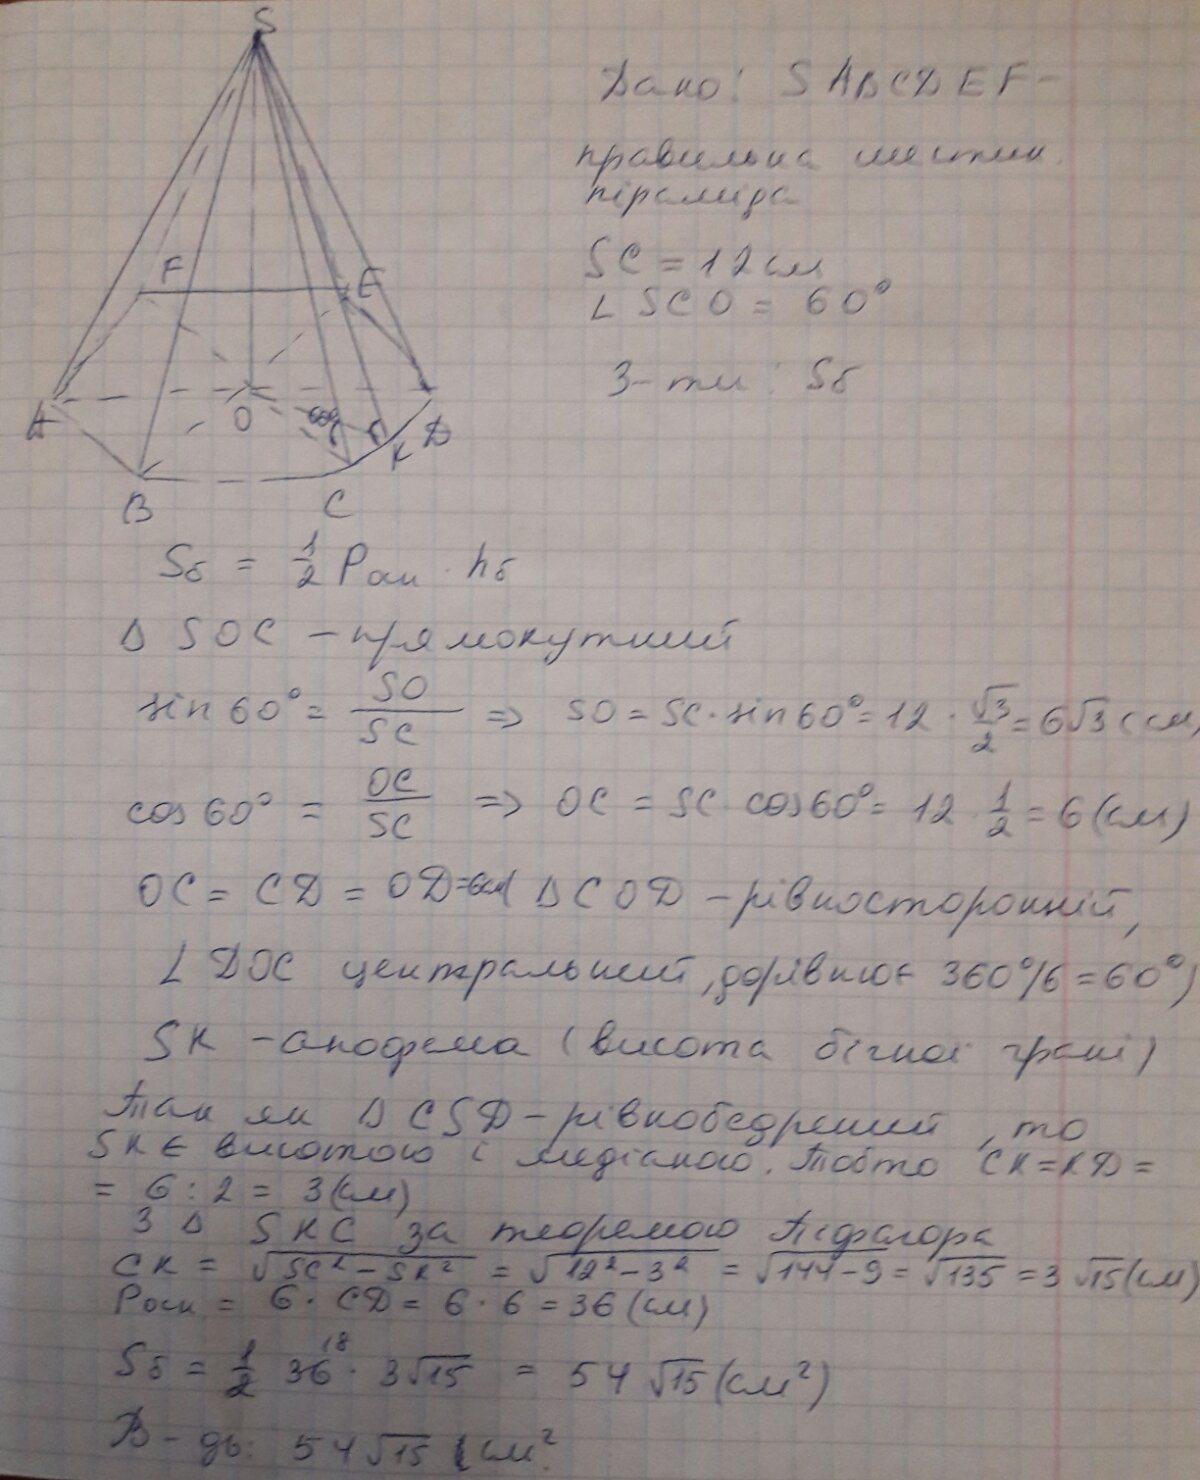 S
Дано: SABCDEF -
правильна шестик.
піраміда
SC = 12 см
∠SCO = 60°
З-ти: Sб
F E
A O K D
B C
Sб = 1/2 Pосн · hб
Δ SOC - прямокутний
sin 60° = SO/SC => SO = SC · sin 60° = 12 · √3/2 = 6√3 (см)
cos 60° = OC/SC => OC = SC · cos 60° = 12 · 1/2 = 6 (см)
OC = CD = OD = 6см ( Δ COD - рівносторонній,
∠ DOC центральний, дорівнює 360°/6 = 60°)
SK - апофема (висота бічної грані)
Так як Δ CSD - рівнобедрений, то
SK є висотою і медіаною. Тобто CK = KD =
= 6 : 2 = 3 (см)
З Δ SKC за теоремою Піфагора
CK = √SC² - SK² = √12² - 3² = √144 - 9 = √135 = 3√15 (см)
Pосн = 6 · CD = 6 · 6 = 36 (см)
Sб = 1/2 36 18 · 3√15 = 54√15 (см²)
В-дь: 54√15 см².